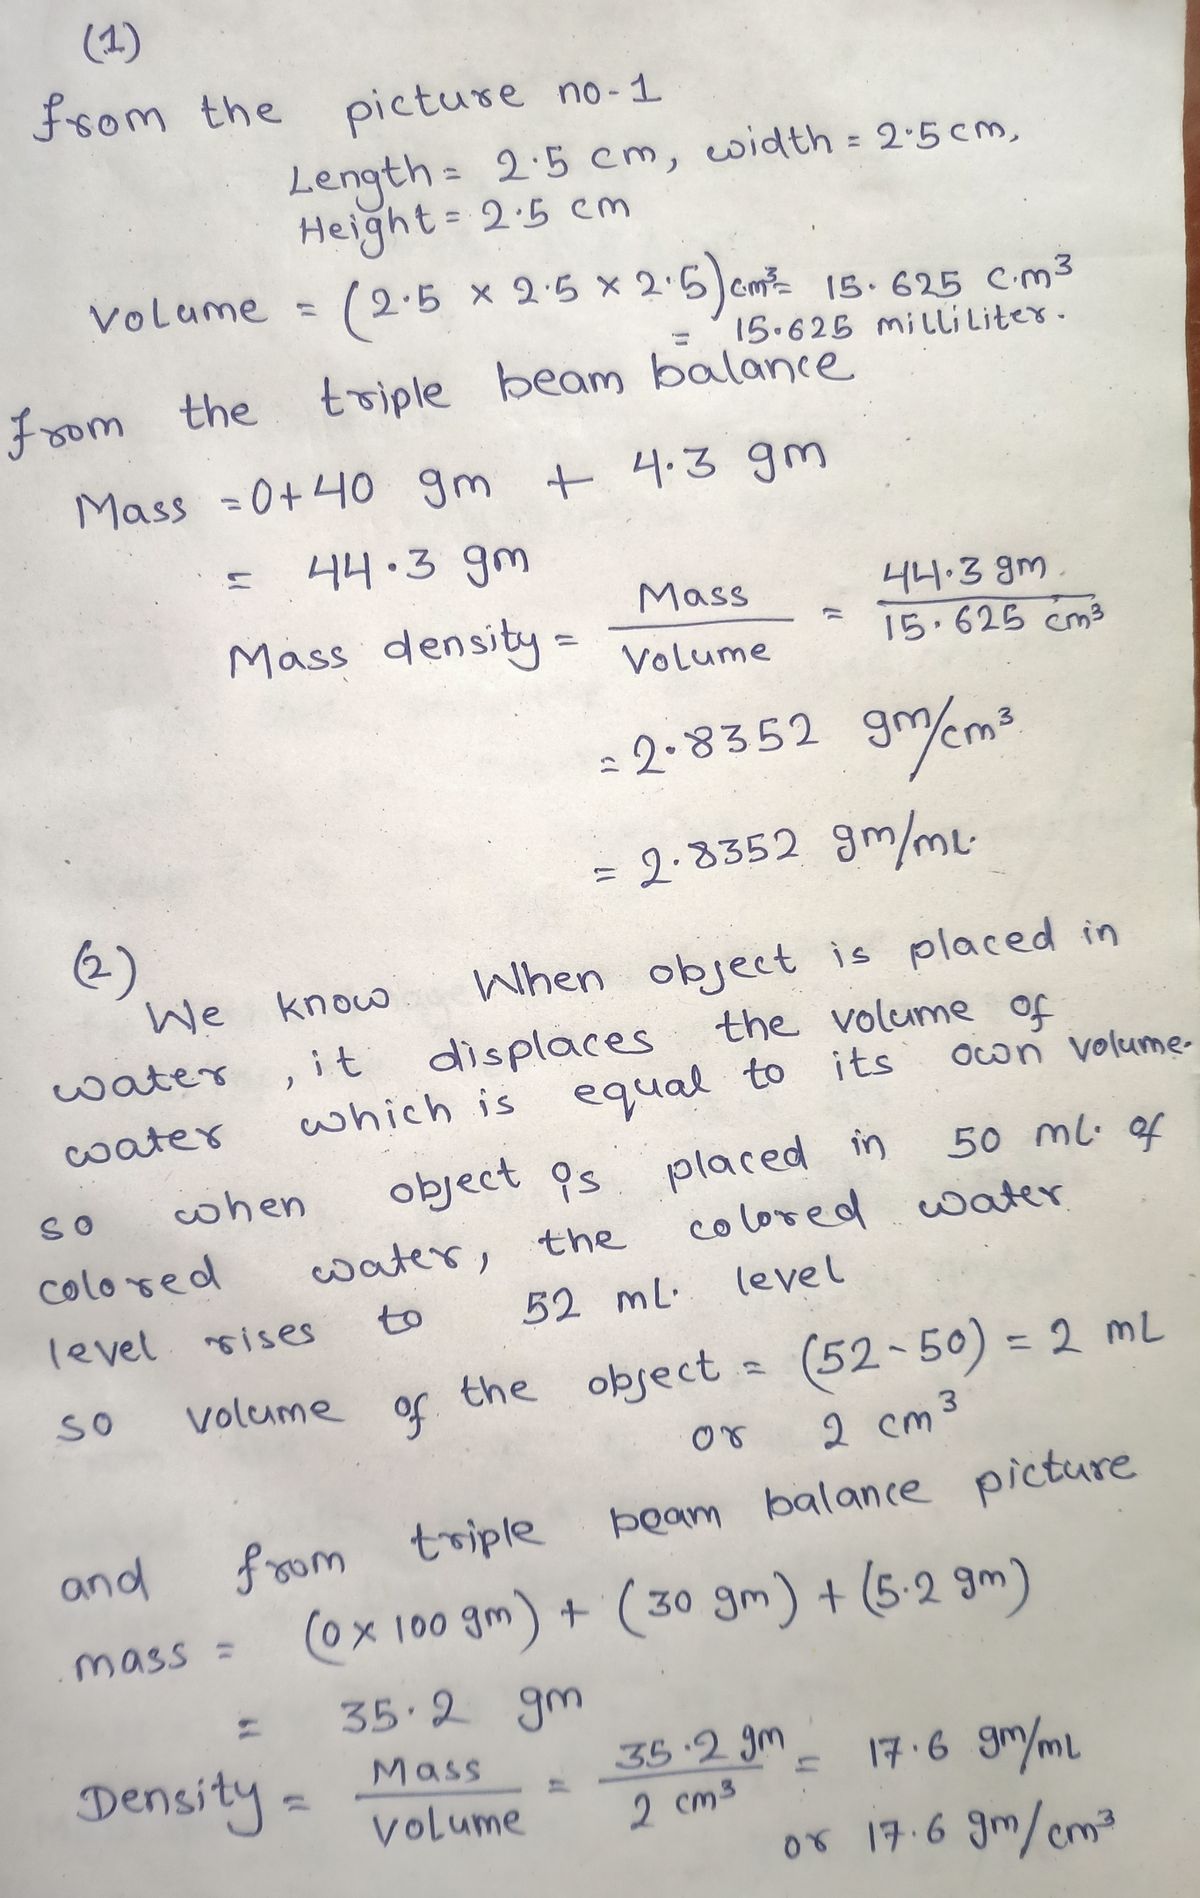 (1)
from the picture no-1
Length = 2.5 cm, width = 2.5 cm,
Height = 2.5 cm
volume = (2.5 x 2.5 x 2.5) cm³ = 15.625 c.m³
= 15.625 milliliter.
from the triple beam balance
Mass = 0+40 gm + 4.3 gm
= 44.3 gm
Mass density = Mass / Volume = 44.3 gm. / 15.625 cm³
= 2.8352 gm/cm³
= 2.8352 gm/mL.
(2)
We know When object is placed in
water, it displaces the volume of
water which is equal to its own volume.
so when object is placed in 50 mL. of
colored water, the colored water
level rises to 52 mL. level
so volume of the object = (52-50) = 2 mL
or 2 cm³
and from triple beam balance picture
mass = (0x100 gm) + (30 gm) + (5.2 gm)
= 35.2 gm
Density = Mass / Volume = 35.2 gm / 2 cm³ = 17.6 gm/mL
or 17.6 gm/cm³